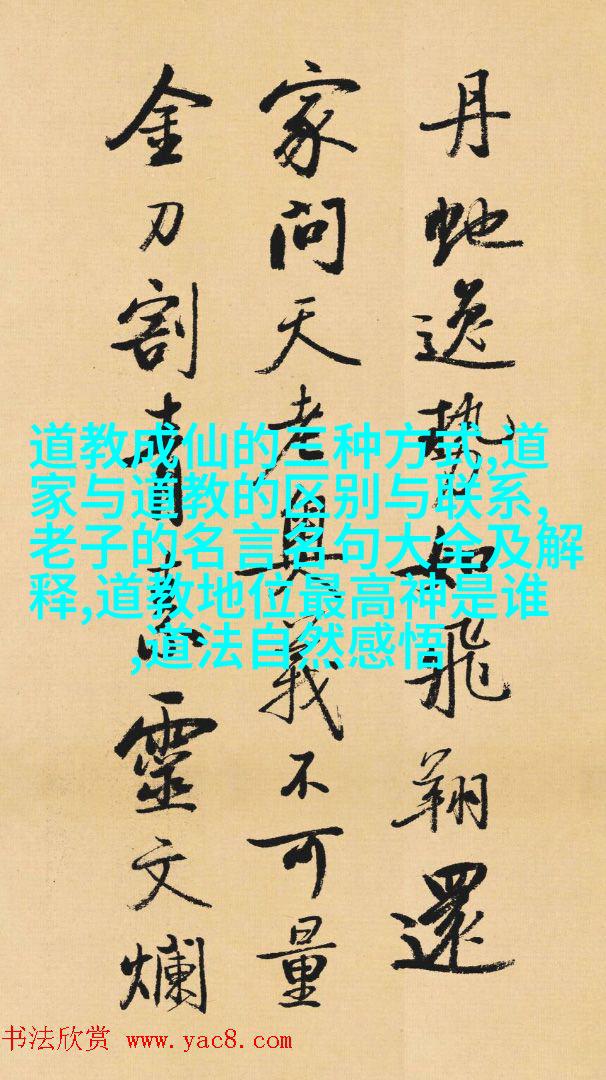 丹虵逸勢如飛翔還
家問天老奧義不可量
金刀割青素靈文爛
道教成仙的三种方式,道
家与道教的区别与联系,
老子的名言名句大全及解
释,道教地位最高神是谁
,道法自然感悟
书法欣赏 www.yac8.com